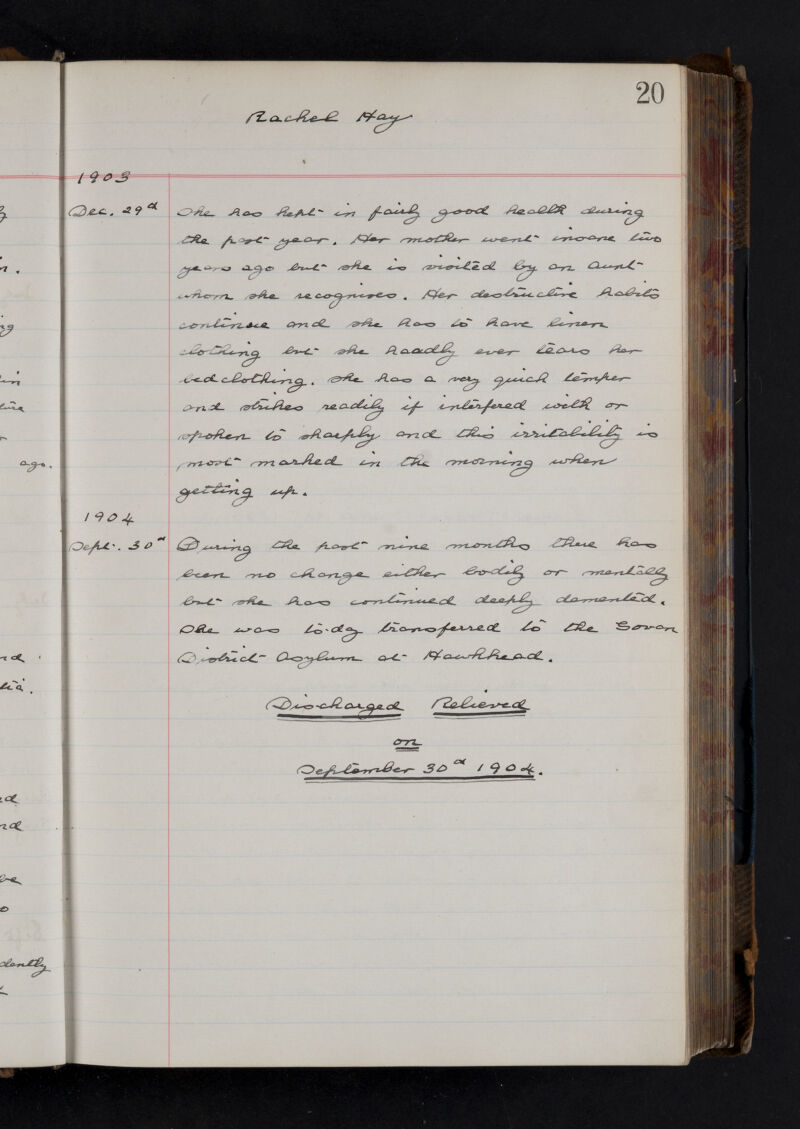 20
Rachel Hay
1903
Dec. 29d She has kept in fairly good health during
the past year. Her mother went insane two
years ago but she is visited by an aunt
whom she recognises. Her destructive habits
continue and she has to have linen
clothing but she haadly ever tears her
bedclothing. She has a very quick temper
and strikes readily if interfered with or
spoken to sharply and this irritability is
most marked in the morning when
getting up.
1904
Sept. 30d During the past nine months there has
been no change either bodily or mentally
but she has continued deeply demented.
She was to-day transferred to the Govan
District Asylum at Hawkhead.
Discharged Relieved
on
September 30d 1904.
ago.
dently